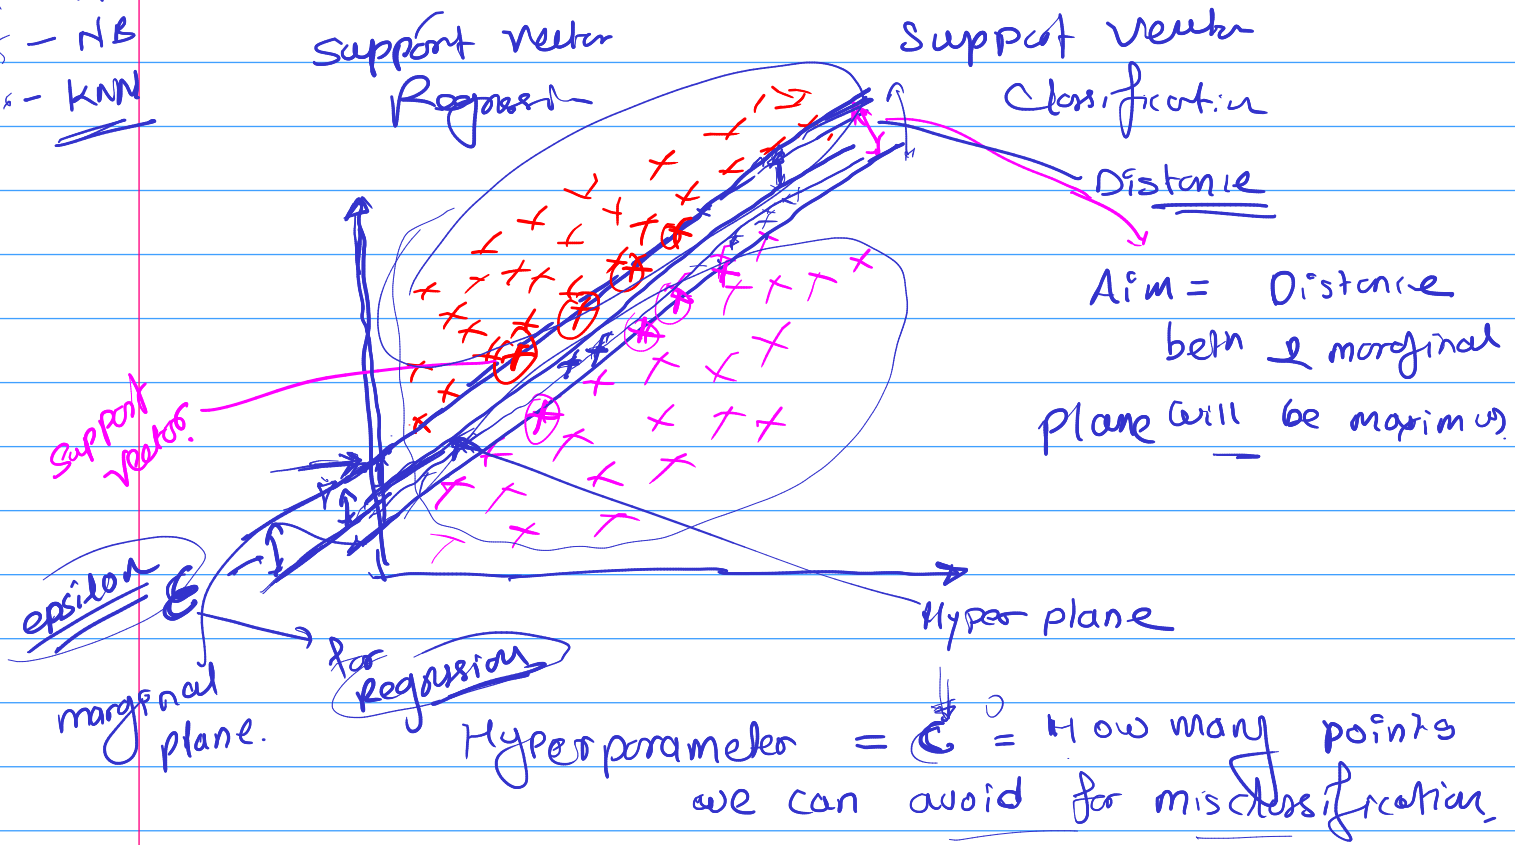 - NB
- KNN
Support Vector
Regression
Support Vector
Classification
Distance
Aim = Distance
betn 2 marginal
plane will be maximum
Support
Vector.
Hyper plane
epsilon ε
for
Regression
marginal
plane.
Hyperparameter = C = How many points
we can avoid for misclassification.